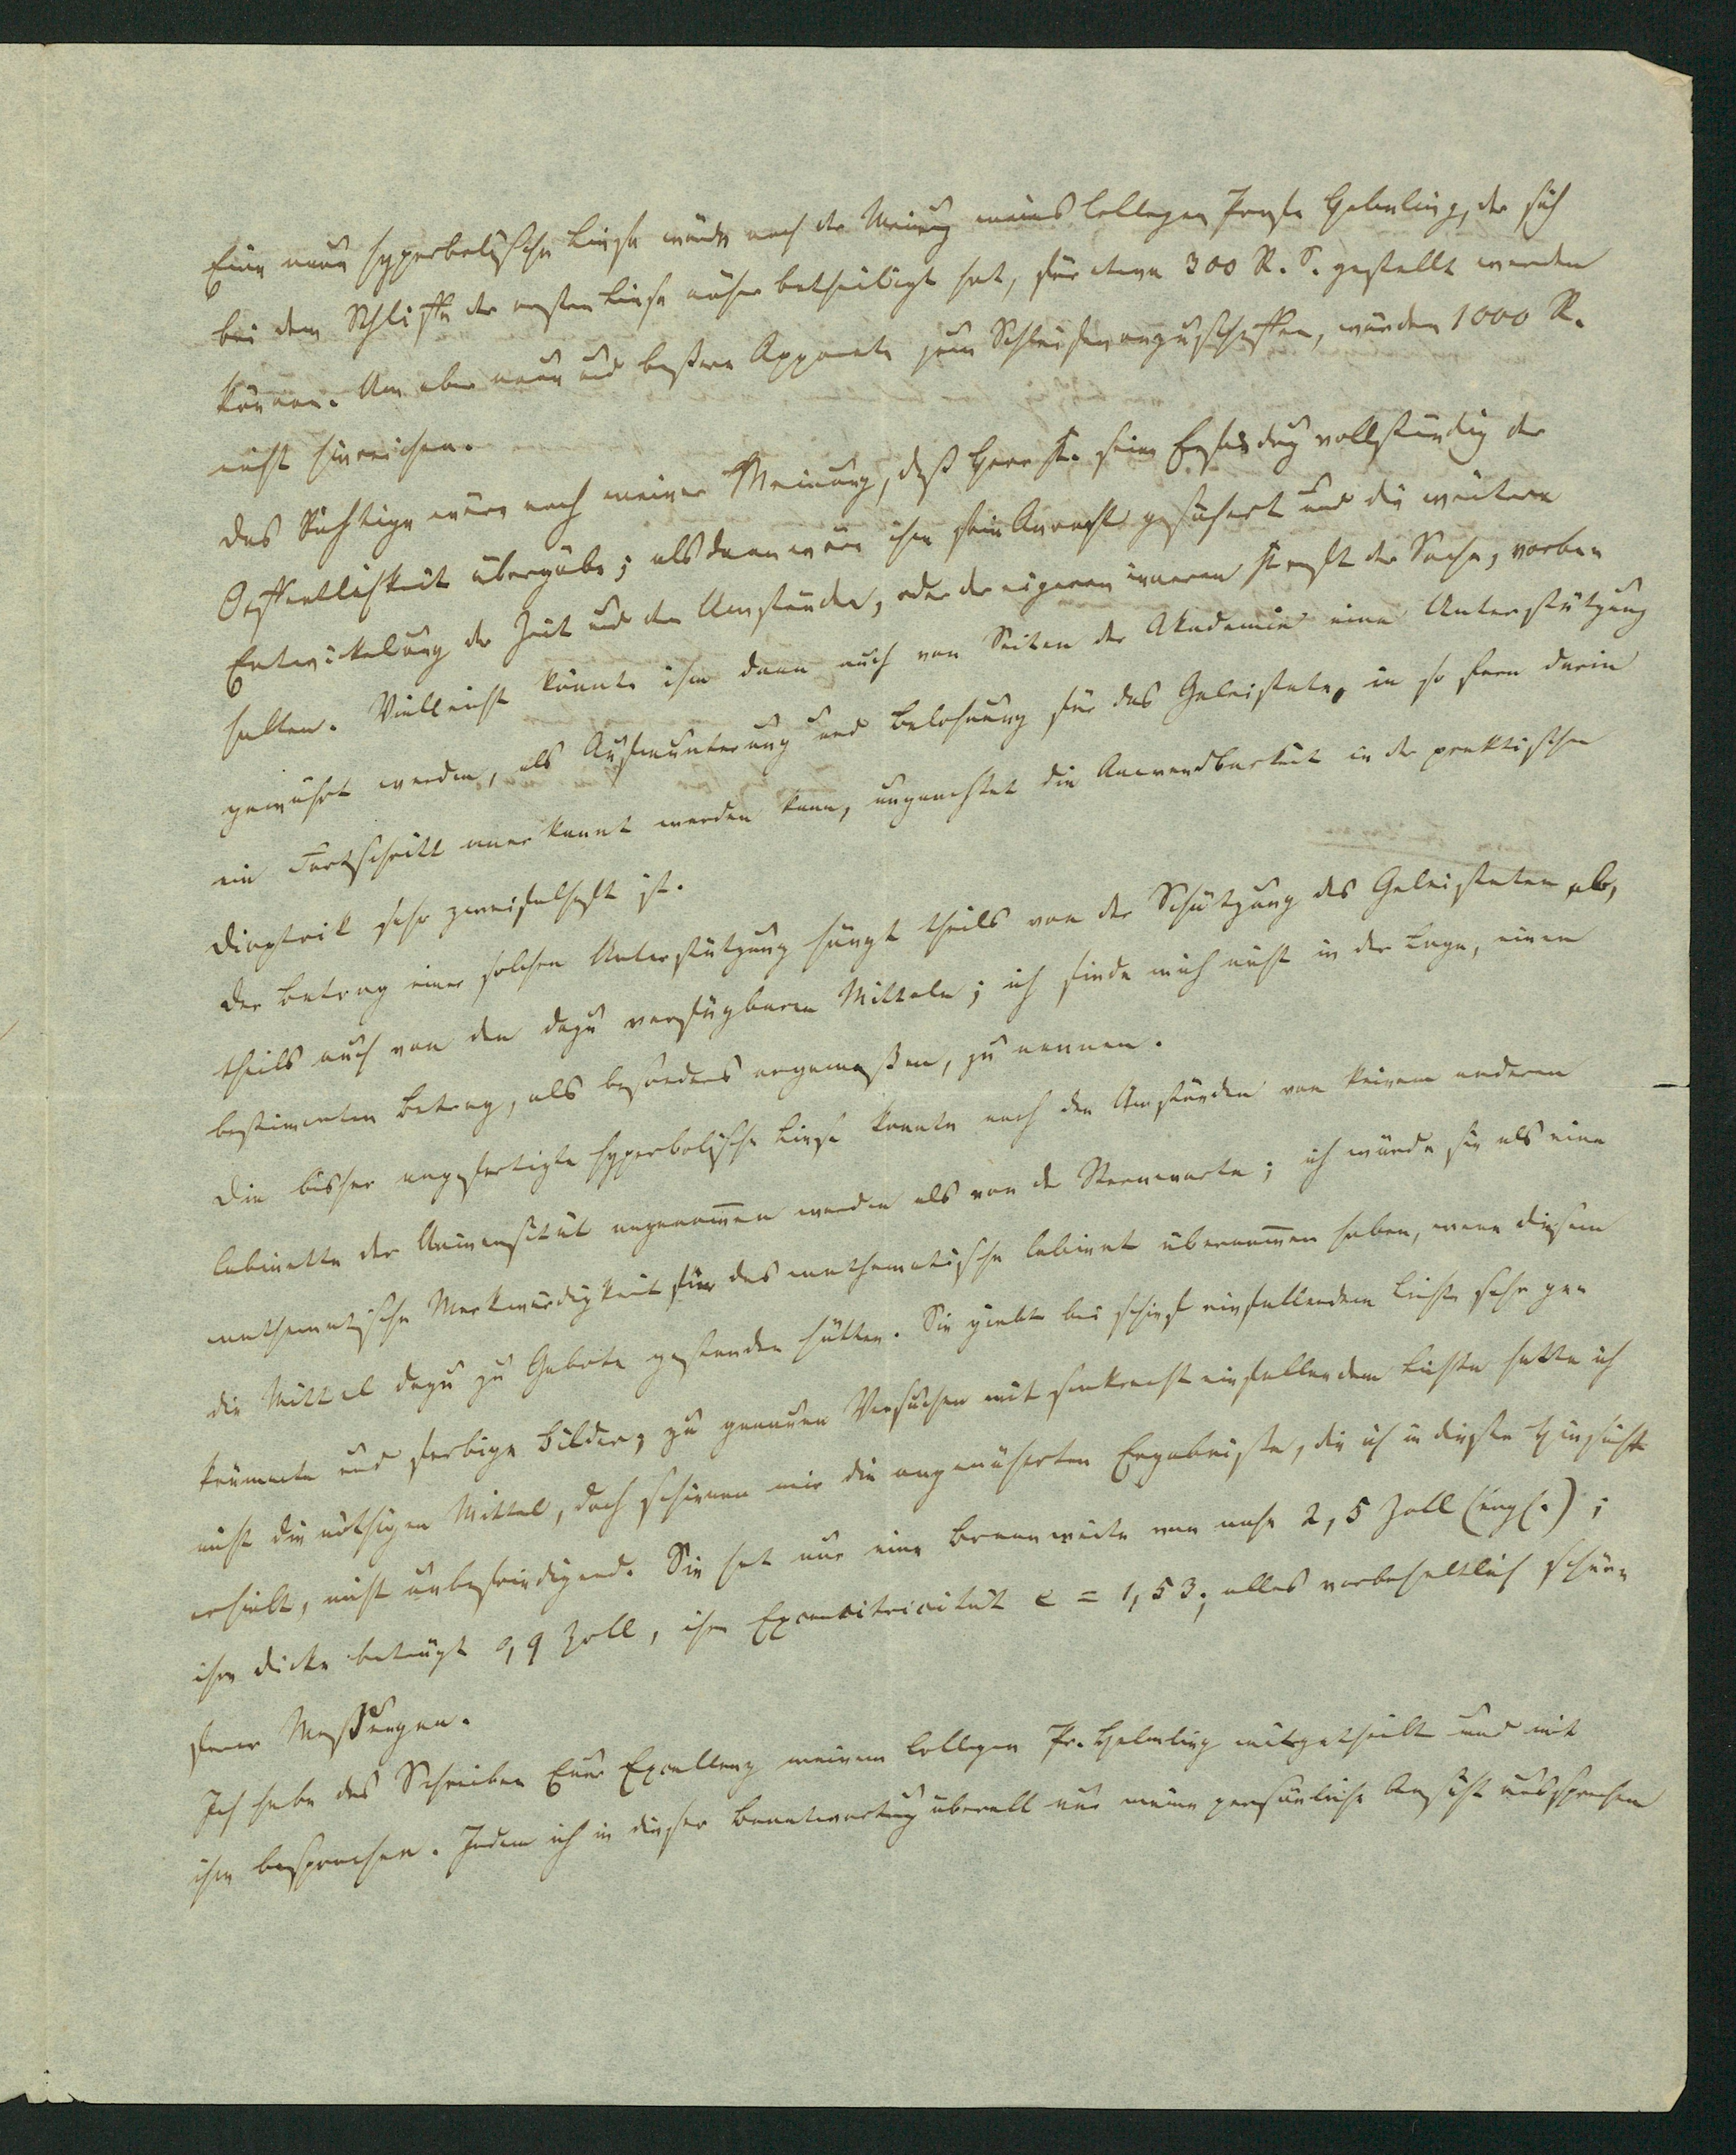 Eine neue hyperbolische Linse würde nach der Meinung meines Collegen Profsr Helmling, der sich
bei dem Schliffe der ersten Linse näher betheiligt hat, für etwa 300 R. S. gestellt werden
können. Um aber neue und bessere Apparate zum Schleifen anzuschaffen, würden 1000 R.
nicht hinreichen.
Das Richtige wäre nach meiner Meinung, daß Herr K. seine Erfindung vollständig der
Oeffentlichkeit übergäbe; alsdann wäre ihm sein Anrecht gesichert und die weitere
Entwickelung der Zeit und den Umständen, oder der eigenen inneren Kraft der Sache, vorbe-
halten. Vielleicht könnte ihm dann auch von Seiten der Akademie eine Unterstützung
gewährt werden, als Aufmunterung und Belohnung für das Geleistete, in so fern darin
ein Fortschritt anerkannt werden kann, ungeachtet die Anwendbarkeit in der praktischen
Dioptrik sehr zweifelhaft ist.
Der Betrag einer solchen Unterstützung hängt theils von der Schätzung des Geleisteten ab,
theils auch von den dazu verfügbaren Mitteln; ich finde mich nicht in der Lage, einen
bestimmten Betrag, als besonders angemessen, zu nennen.
Die bisher angefertigte hyperbolische Linse konnte nach den Umständen von keinem anderen
Cabinette der Universität angenom̅en werden als von der Sternwarte; ich würde sie als eine
mathematische Merkwürdigkeit für das mathematische Cabinet übernom̅en haben, wenn diesem
die Mittel dazu zu Gebote gestanden hätten. Sie giebt bei schief einfallendem Lichte sehr ge-
krümmte und farbige Bilder; zu genauen Versuchen mit senkrecht einfallendem Lichte hatte ich
nicht die nöthigen Mittel, doch schienen mir die angenäherten Ergebnisse, die ich in dieser Hinsicht
erhielt, nicht unbefriedigend. Sie hat nur eine Brennweite von nahe 2,5 Zoll (engl.);
ihre Dicke beträgt 0,9 Zoll, ihre Excentricität e = 1,53; alles vorbehaltlich schär-
ferer Messungen.
Ich habe das Schreiben Euer Excellenz meinem Collegen Pr. Helmling mitgetheilt und mit
ihm besprochen. Indem ich in dieser Beantwortung überall nur meine persönliche Ansicht ausspreche